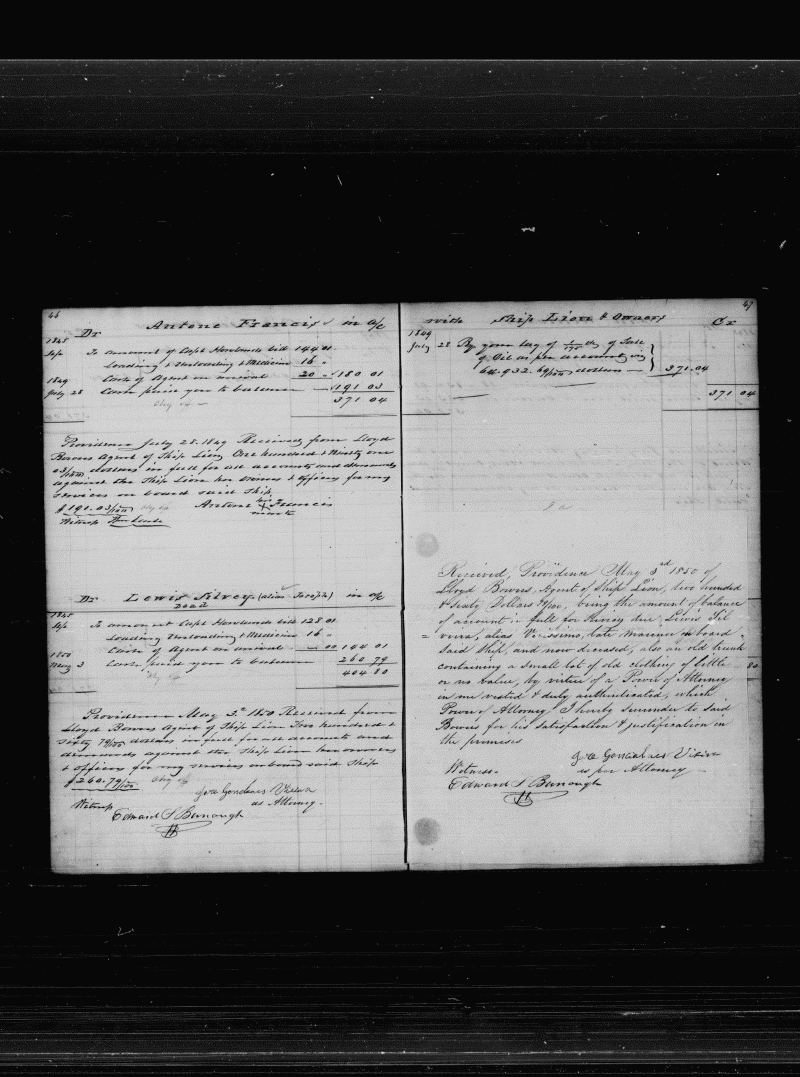 46
Dr Antone Francis in a/c
1845
Sep To amount of Capt Howlands bill 144 01
Loading & Unloading & Medicine 16 "
1849 Cash of Agent on arrival 20 " 180 01
July 28 Cash paid you to balance 191 03
371 04
Providence July 28. 1849 Received from Lloyd
Bowers Agent of Ship Lion One hundred & Ninety one
03/100 dollars in full for all accounts and demands
against the Ship Lion her owners & officers for my
services on board said Ship
$191.03/100 Antone his + mark Francis
Witness
Dr Lewis Silvey (alias Joseph) in a/c
Dead
1845
Sep To amount Capt Howlands bill 128 01
Loading Unloading & Medicine 16 "
1850 Cash of Agent on arrival 00 144 01
May 3 Cash paid you to balance 260 79
404 80
Providence May 3d 1850 Received from
Lloyd Bowers Agent of Ship Lion Two hundred &
sixty 79/100 dollars in full for all accounts and
demands against the Ship Lion her owners
& officers for my services onboard said Ship
$260.79/100
as Attorney.
Witness
Edward S Burrough
47
with Ship Lion & Owners Cr
1849
July 28 By your lay of of Sale
of Oil as per account in
dollars 371.04
371 04
Received, Providence May 3rd 1850 of
Lloyd Bowers, Agent of Ship Lion, two hundred
& sixty Dollars 79/100, being the amount of balance
of account in full for Money due Lewis Sil
= veira, alias Virissimo, late mariner on board
said Ship, and now deceased, also an old trunk
containing a small lot of old clothing of little
or no value, by virtue of a Power of Attorney
in me vested & duly authenticated, which
Power of Attorney I hereby surrender to said
Bowers for his satisfaction & justification in
the premises
as per Attorney
Witness.
Edward S Burrough
80